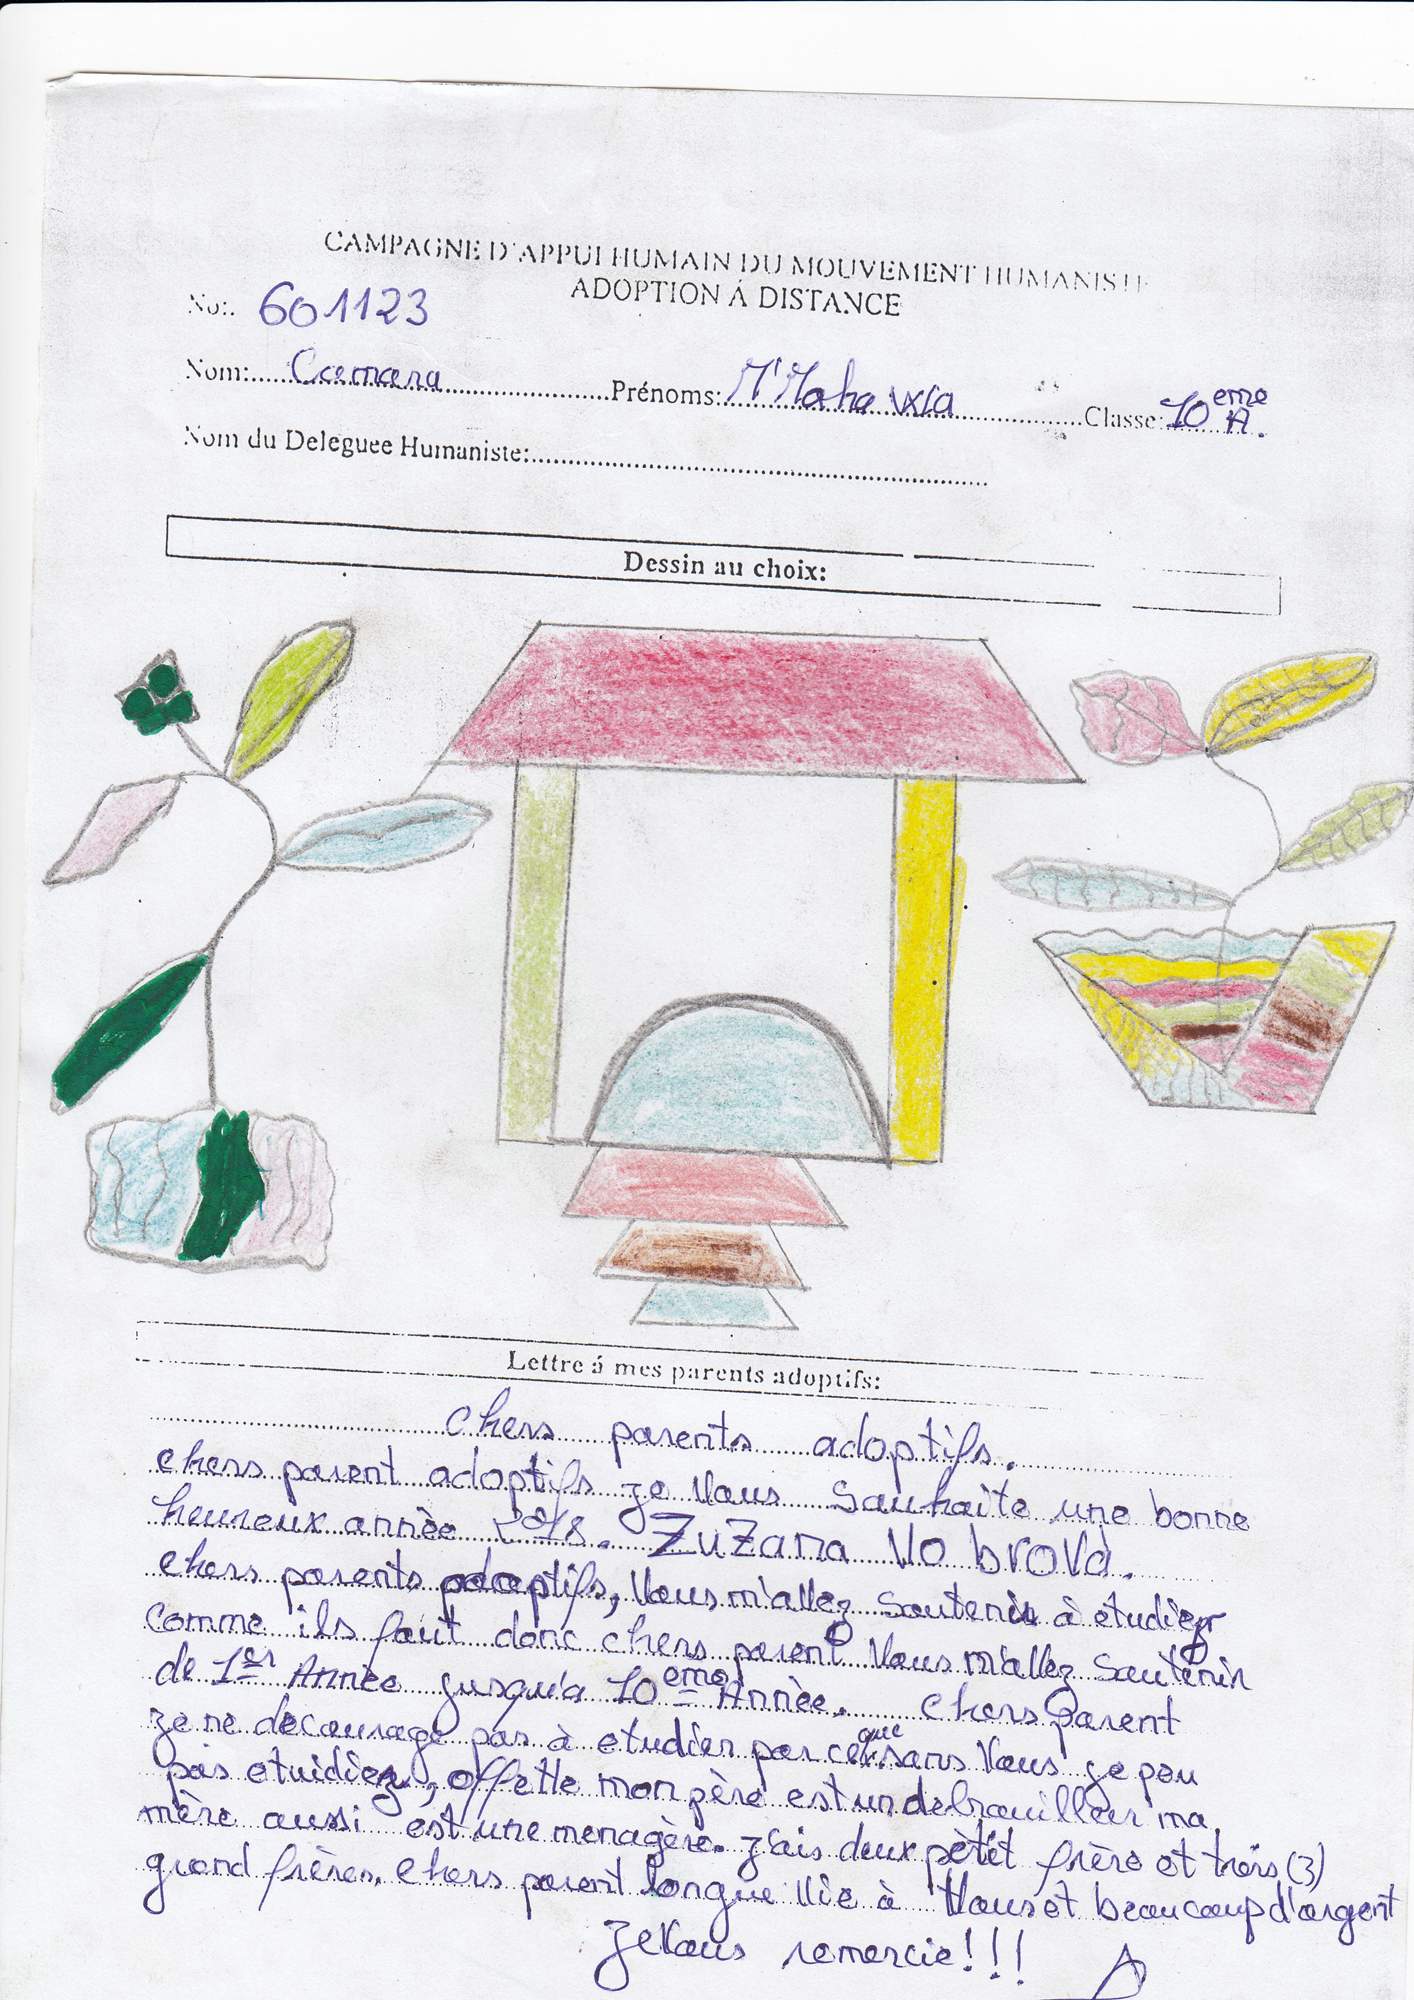 CAMPAGNE D'APPUI HUMAIN DU MOUVEMENT HUMANISTE
ADOPTION Á DISTANCE
No:. 601123
Nom: Camara Prénoms: M'Mahawa Classe: 10eme A.
Nom du Deleguee Humaniste:
Dessin au choix:
Lettre á mes parents adoptifs:
chers parents adoptifs.
chers parent adoptifs je vous souhaite une bonne
heureux année 2018. ZuZana Vo brova.
chers parents adoptifs, vous m'allez soutenir à étudier
comme ils faut donc chers parent vous m'allez soutenir
de 1er Année jusqu'a 10ème Année. chers parent
je ne décourage pas à etudier par ce que sans vous je peu
pas etuidiez, offette mon père est un debrouilleur ma
mère aussi est une menagère. J'ais deux pètit frère et trois (3)
grand frères. chers parent longue vie à vous et beaucoup d'argent
je vous remercie!!!